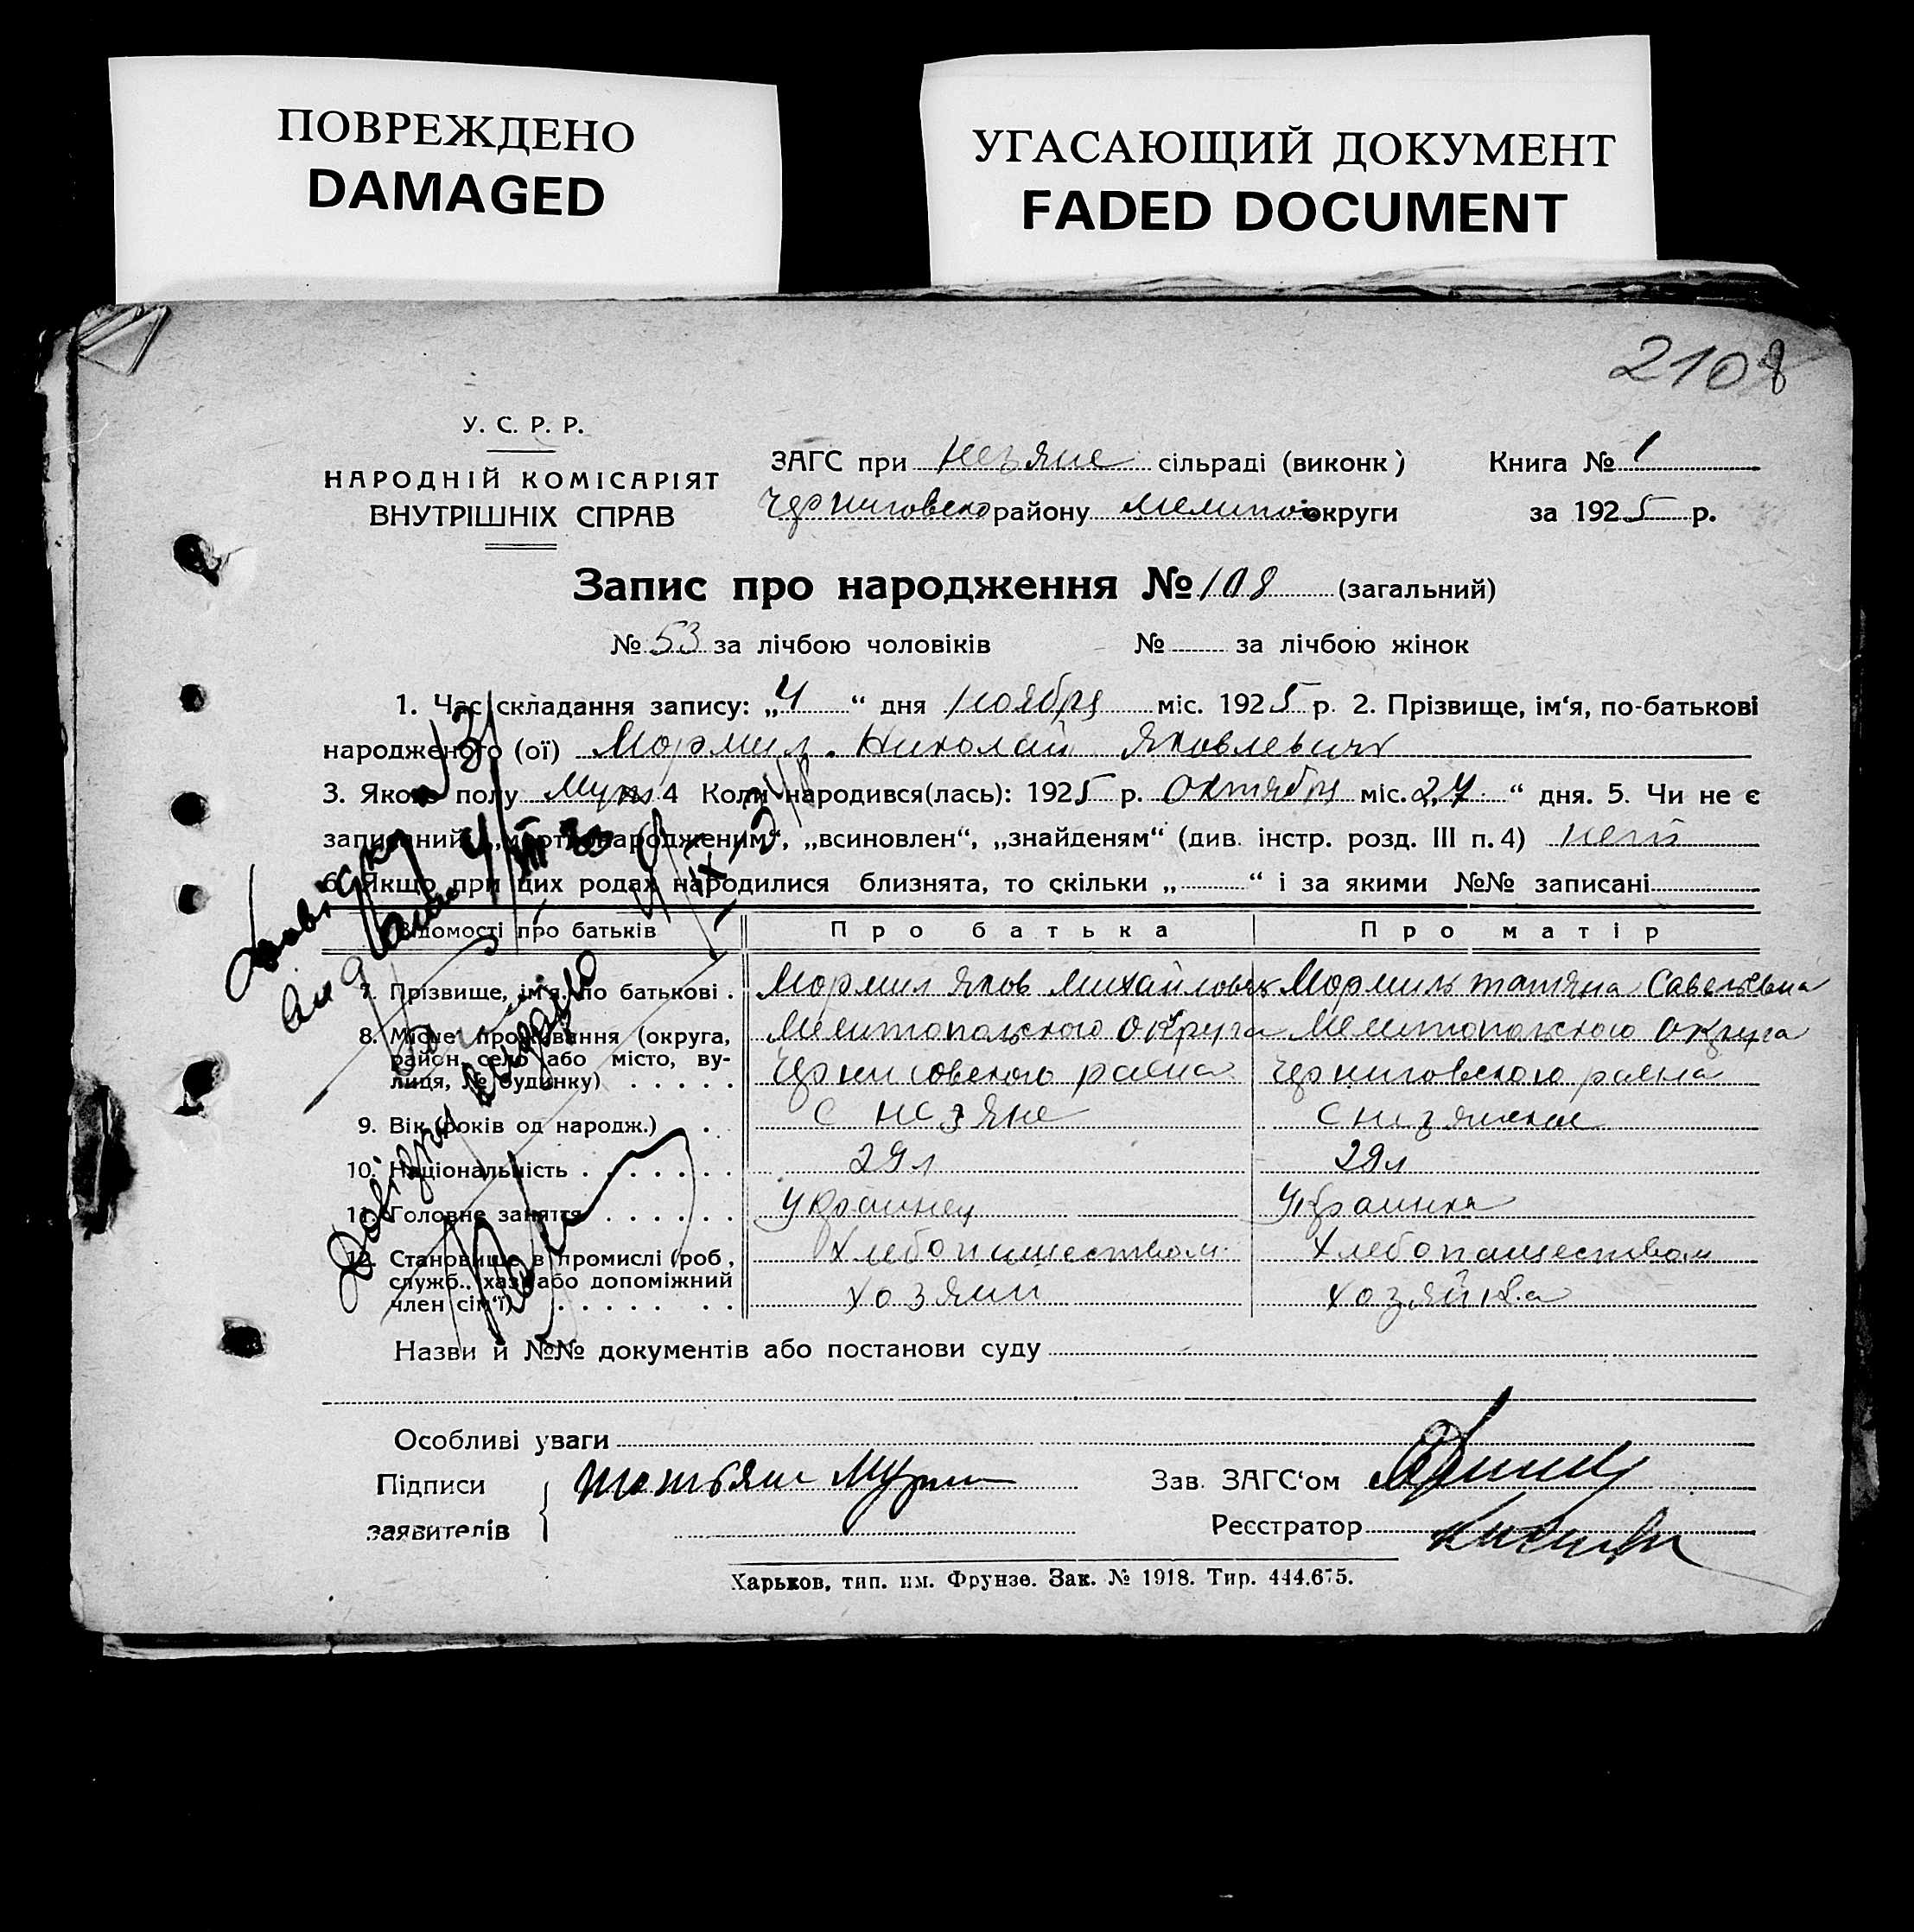 ПОВРЕЖДЕНО
DAMAGED
УГАСАЮЩИЙ ДОКУМЕНТ
FADED DOCUMENT
2108
У. С. Р. Р.
НАРОДНІЙ КОМІСАРІЯТ
ВНУТРІШНІХ СПРАВ
ЗАГС при Незяне сільраді (виконк) Книга № 1
району округи за 1925 р.
Запис про народження № 108 (загальний)
№ 53 за лічбою чоловіків № за лічбою жінок
1. Час складання запису: „4“ дня ноября міс. 1925 р. 2. Прізвище, ім‘я, по-батькові
народженого (ої) Мормил Николай Яковлевич
3. Якого полу Муж 4 Коли народився(лась): 1925 р. Октября міс. „27“ дня. 5. Чи не є
записаний „мертвонародженим“, „всиновлен“, „знайденям“ (див. інстр. розд. III п. 4) нет
6. Якщо при цих родах народилися близнята, то скільки „ “ і за якими №№ записані
Відомості про батьків Про батька Про матір
7. Прізвище, ім‘я, по батькові . Мормил Яков Михайлович Мормиль татяна Савельевна
8. Місце проживання (округа, Мелитопольского Округа Мелитопольского Округа
район, село або місто, ву-
лиця, № будинку) . . . . . Черниговского раена Черниговского раена
9. Вік (років од народж.) . . С Незяне С
10. Національність . . . . . . 29 л 29 л
11. Головне заняття . . . . . . Украинец Украинка
12. Становище в промислі (роб, Хлебопашеством Хлебопашеством
служб., хазяї або допоміжний
член сім‘ї) . . . . . . . хозяин хозяйка
Довідку
Довідку видано
Назви й №№ документів або постанови суду
Особливі уваги
Підписи Зав. ЗАГС‘ом
заявителів Реєстратор
Харьков, тип. им. Фрунзе. Зак. № 1918. Тир. 444.675.